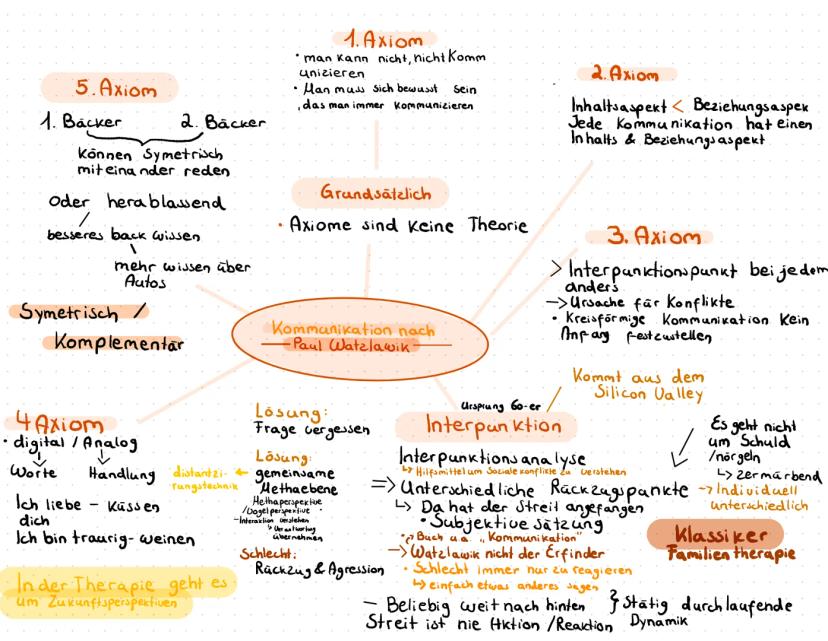 1. Axiom
• man kann nicht, nicht Komm
unizieren
• Man muss sich bewusst sein
, das man immer Kommunizieren
2. Axiom
Inhaltsaspekt < Beziehungsaspek
Jede Kommunikation hat einen
Inhalts & Beziehungsaspekt
5. Axiom
1. Bäcker 2. Bäcker
Können Symetrisch
miteinander reden
Oder herablassend
besseres back wissen
mehr wissen über
Autos
Symetrisch /
Komplementär
Grundsätzlich
• Axiome sind Keine Theorie
3. Axiom
> Interpunktionspunkt bei jedem
anders
-> Ursache für Konflikte
• Kreisförmige Kommunikation Kein
Anfang festzustellen
Kommunikation nach
Paul Watzlawik
4 Axiom
• digital / Analog
Worte Handlung
Ich liebe - Küssen
dich
Ich bin traurig - weinen
In der Therapie geht es
um Zukunftsperspektiven
Lösung:
Frage vergessen
Lösung:
distantzi-
rungstechnik
gemeinsame
Methaebene
Methaperspektive
/Vogelperspektive
- Interaktion verstehen
↳ Verantwortung
übernehmen
Schlecht:
Rückzug & Agression
Ursprung 60-er
Kommt aus dem
Silicon Valley
Interpunktion
Interpunktionsanalyse
↳ Hilfsmittel um Soziale konflikte zu verstehen
=> Unterschiedliche Rückzugspunkte
↳ Da hat der Streit angefangen
• Subjektive sätzung
Buch u.a. „Kommunikation"
-> Watzlawik nicht der Erfinder
• Schlecht immer nur zu reagieren
↳ einfach etwas anderes sagen
Es geht nicht
um Schuld
/nörgeln
↳ zermürbend
-> Individuell
unterschiedlich
Klassiker
Familientherapie
- Beliebig weit nach hinten
Streit ist nie Aktion / Reaktion
} Stätig durchlaufende
Dynamik